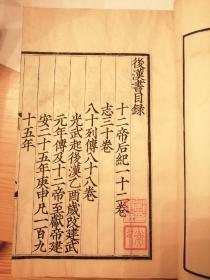 後漢書目録
十二帝后紀一十二卷
志三十卷
八十列傳八十八卷
光武起後漢乙酉歲改建武
元年傳及十二帝至獻帝建
安二十五年庚申凡一百九
十五年